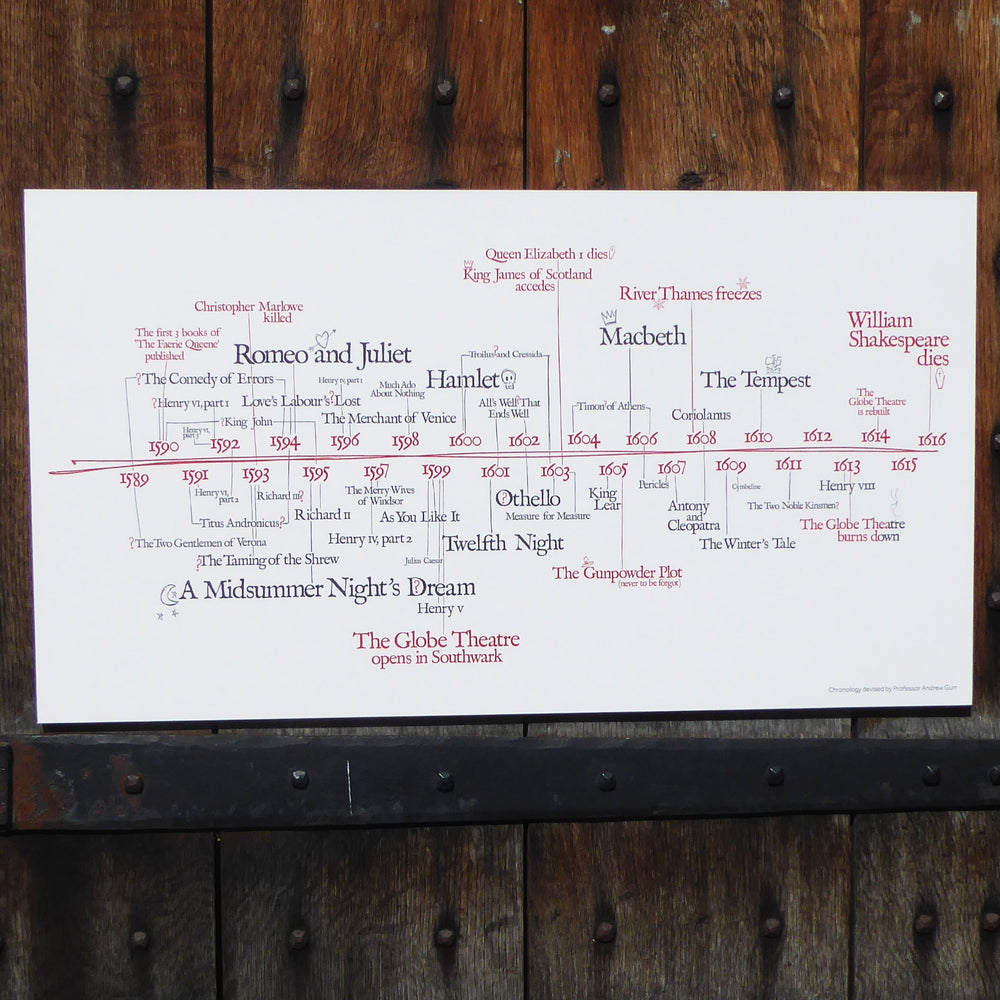 Queen Elizabeth I dies
King James of Scotland
accedes
River Thames freezes
Christopher Marlowe
killed
The first 3 books of
'The Faerie Queene'
published
William
Shakespeare
dies
Macbeth
Romeo and Juliet
Troilus? and Cressida
Hamlet
The Tempest
?The Comedy of Errors
Henry IV, part 1
Much Ado
About Nothing
The
Globe Theatre
is rebuilt
?Henry VI, part 1
Love's Labour's? Lost
All's Well? That
Ends Well
Timon? of Athens
Coriolanus
?King John
The Merchant of Venice
Henry VI,
part 3
1590 1592 1594 1596 1598 1600 1602 1604 1606 1608 1610 1612 1614 1616
1589 1591 1593 1595 1597 1599 1601 1603 1605 1607 1609 1611 1613 1615
Henry VI,
part 2
Richard III?
The Merry Wives
of Windsor
Othello
King
Lear
Pericles
Cymbeline
Henry VIII
Titus Andronicus?
Richard II
As You Like It
Measure for Measure
Antony
and
Cleopatra
The Two Noble Kinsmen?
The Globe Theatre
burns down
?The Two Gentlemen of Verona
Henry IV, part 2
Twelfth Night
The Winter's Tale
?The Taming of the Shrew
Julius Caesar
The Gunpowder Plot
(never to be forgot)
A Midsummer Night's Dream
?
Henry V
The Globe Theatre
opens in Southwark
Chronology devised by Professor Andrew Gurr